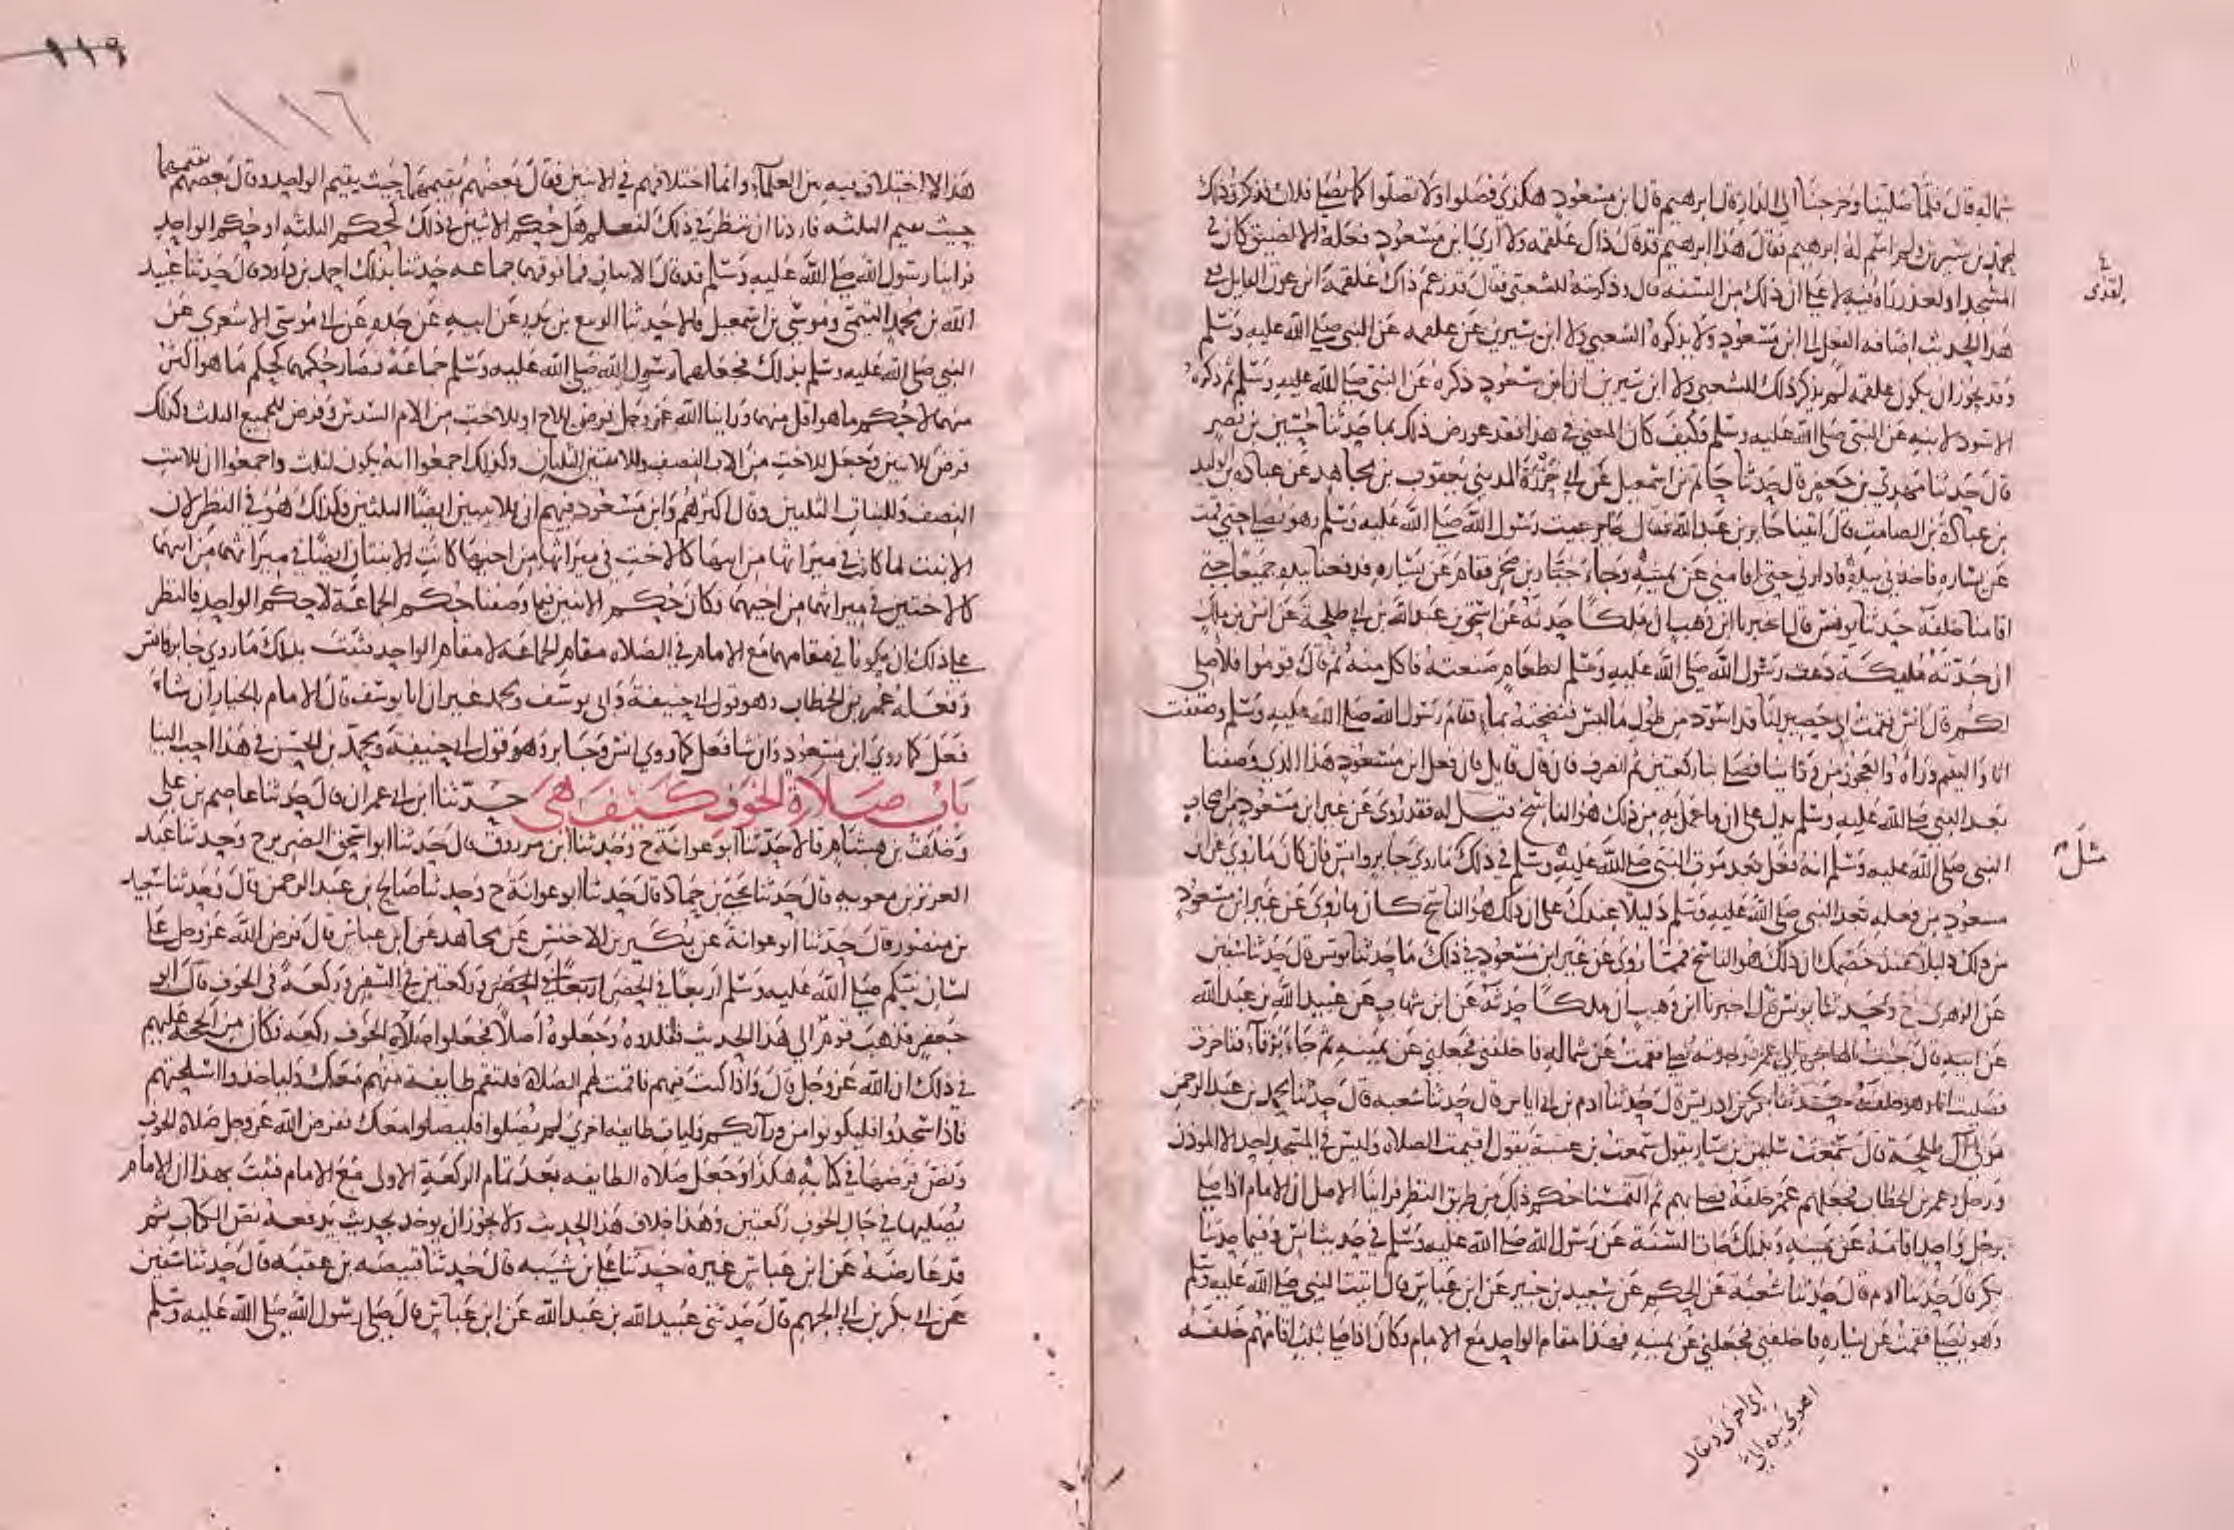 شماله قال فلما صلينا وخرجنا الى الدار قال ابرهيم قال ابن مسعود هكذى فصلوا ولا تصلوا كما يصلي فلان فذكرت ذلك
لمحمد بن سيرين ولم اسم له ابرهيم فقال هذا ابرهيم قد قال ذاك علقمه ولا ارى ابن مسعود فعله الا لضيق كان في
المسجد او لعذر راه فيه لا على ان ذلك من السنه قال وذكرته للشعبى فقال قد زعم ذاك علقمه ابن عون القايل ففي
هذا الحديث اضافه الفعل الى ابن مسعود ولا يذكره الشعبي ولا ابن سيرين عن علقمه عن النبي صلى الله عليه وسلم
وقد يجوز ان يكون علقمه لم يذكر ذلك للشعبى ولا ابن سيرين ان ابن مسعود ذكره عن النبي صلى الله عليه وسلم ثم ذكره
الاسود لابنه عن النبي صلى الله عليه وسلم وكيف كان المعنى في هذا فقد عورض ذلك بما حدثنا حسين بن نصير
قال حدثنا مهدي بن جعفر قال حدثنا حاتم بن اسمعيل عن ابي حزرة المديني يعقوب بن مجاهد عن عباده بن الوليد
بن عبادة بن الصامت قال اتينا جابر بن عبد الله فقال جابر جيت رسول الله صلى الله عليه وسلم وهو يصلي حتى قمت
عن يساره فاخذني بيده فادارني حتى اقامني عن يمينه وجاء جبار بن صخر فقام عن يساره فدفعنا بيده جميعا حتى
اقامنا خلفه حدثنا يونس قال اخبرنا ابن وهب ان ملكا حدثه عن اسحق بن عبد الله بن ابي طلحة عن انس بن مالك
ان جدته مليكة دعت رسول الله صلى الله عليه وسلم لطعام صنعته فاكل منه ثم قال قوموا فلاصلي
لكم قال انس فقمت الى حصير لنا قد اسود من طول ما لبس فنضحته بماء فقام رسول الله صلى الله عليه وسلم وصففت
انا واليتيم وراه والعجوز من ورائنا فصلى بنا ركعتين ثم انصرف فان قال قايل فان فعل ابن مسعود هذا الذي وصفنا
بعد النبي صلى الله عليه وسلم يدل على ان ما عمل به من ذلك هو الناسخ قيل له فقد روى عن غير ابن مسعود من اصحاب
النبي صلى الله عليه وسلم انه فعل بعد موت النبي صلى الله عليه وسلم في ذلك ماروى جابر وانس فان كان ما روي عن ابن
مسعود من فعله بعد النبي صلى الله عليه وسلم دليلا عندك على ان ذلك هو الناسخ كان ما روى عن غير ابن مسعود
من ذلك دليلا عند خصمك ان ذلك هو الناسخ فمما روى عن غير ابن مسعود في ذلك ما حدثنا يونس قال حدثنا سفين
عن الزهرى ح وحدثنا يونس قال اخبرنا ابن وهب ان ملكا حدثه عن ابن شهاب عن عبيد الله بن عبد الله
عن ابيه قال جيت الى عمر فوجدته يصلي فقمت عن شماله فاخلفني فجعلني عن يمينه ثم جاء يرفأ فتاخرت
فصليت انا وهو خلفه حدثنا بكر بن ادريس قال حدثنا ادم بن ابي اياس قال حدثنا شعبه قال حدثنا محمد بن عبد الرحمن
مولى آل طلحة قال سمعت سليمن بن يسار يقول سمعت بن عتبة يقول اقيمت الصلاه وليس في المسجد احد الا الموذن
ورجل وعمر بن الخطاب فجعلهم عمر خلفه يصلي بهم ثم التمسنا حكم ذلك من طريق النظر فراينا الاصل ان الامام اذا صلى
برجل واحد اقامه عن يمينه وبذلك جات السنة عن رسول الله صلى الله عليه وسلم في حديث انس وفيما حدثنا
بكر قال حدثنا ادم قال حدثنا شعبة عن الحكم عن سعيد بن جبير عن ابن عباس قال اتيت النبي صلى الله عليه وسلم
وهو يصلي فقمت عن يساره فاخلفني فجعلني عن يمينه فهذا مقام الواحد مع الامام وكان اذا صلى بثلثة اقامهم خلفه
مثل
هذا لا اختلاف فيه بين العلماء وانما اختلافهم في الاثنين فقال بعضهم يقيمهما حيث يقيم الواحد وقال بعضهم يقيمهما
حيث يقيم الثلثه فاردنا ان ننظر في ذلك لنعلم هل حكم الاثنين في ذلك كحكم الثلثه او حكم الواحد
فراينا رسول الله صلى الله عليه وسلم قد قال الاثنان فما فوقهما جماعه حدثنا بذلك احمد بن داود قال حدثنا عبيد
الله بن محمد التيمي وموسى بن اسمعيل قالا حدثنا الربيع بن بدر عن ابيه عن جده عن ابي موسى الاشعري عن
النبي صلى الله عليه وسلم بذلك فجعلهما رسول الله صلى الله عليه وسلم جماعة فصار حكمهما كحكم ما هو اكثر
منهما لا حكم ما هو اقل منهما وراينا الله عز وجل فرض للاخ او للاخت من الام السدس وفرض للجميع الثلث وكذلك
فرض للاثنين وجعل للاخت من الاب النصف وللاثنتين الثلثان وكذلك اجمعوا انه يكون لثلث واجمعوا ان للابنت
النصف وللبنات الثلثين وقال اكثرهم وابن مسعود فيهم ان للابنتين ايضا الثلثين وكذلك هو في النظر لان
الابنت لما كانت في ميراثها من ابيها كالاخت في ميراثها من اخيها كانت الابنتان ايضا في ميراثهما من ابيهما
كالاختين في ميراثهما من اخيهما وكان حكم الاثنين فيما وصفنا حكم الجماعة لا حكم الواحد فالنظر
على ذلك ان يكونا في مقامهما مع الامام في الصلاه مقام الجماعه لا مقام الواحد فثبت بذلك ما روى جابر وانس
وفعله عمر بن الخطاب وهو قول ابي حنيفة وابي يوسف ومحمد غير ان ابا يوسف قال الامام بالخيار ان شاء
فعل كما روى ابن مسعود وان شا فعل كما روى انس وجابر وهو قول ابي حنيفة ومحمد بن الحسن في هذا احب الينا
باب صلاة الخوف كيف هي حدثنا ابن ابي عمران قال حدثنا عاصم بن على
وخلف بن هشام قالا حدثنا ابو عوانة ح وحدثنا ابن مرزوق قال حدثنا ابو اسحق الضرير ح وحدثنا عبد
العزيز بن معويه قال حدثنا يحيى بن حماد قال حدثنا ابو عوانة ح وحدثنا صالح بن عبد الرحمن قال وحدثنا سعيد
بن منصور قال حدثنا ابو عوانة عن بكير بن الاخنس عن مجاهد عن ابن عباس قال فرض الله عز وجل على
لسان نبيكم صلى الله عليه وسلم اربعا في الحضر اربعا في الحضر وركعتين في السفر وركعة في الخوف قال ابو
جعفر فذهب قوم الى هذا الحديث فقلدوه وجعلوه اصلا فجعلوا صلاة الخوف ركعه فكان من الحجه عليهم
في ذلك ان الله عز وجل قال واذا كنت فيهم فاقمت لهم الصلاه فلتقم طايفة منهم معك ولياخذوا اسلحتهم
فاذا سجدوا فليكونوا من ورآئكم ولتات طايفه اخرى لم يصلوا فليصلوا معك ففرض الله عز وجل صلاة الخوف
ونص فرضها في كتابه هكذا وجعل صلاه الطايفه بعد تمام الركعة الاولى مع الامام فثبت بهذا ان الامام
يصليها في حال الخوف ركعتين وهذا خلاف هذا الحديث ولا يجوز ان يوخذ بحديث يدفعه نص الكتاب ثم
قد عارضه عن ابن عباس غيره حدثنا علي بن شيبه قال حدثنا قبيصه بن عقبه قال حدثنا سفين
عن ابي بكر بن ابي الجهم قال حدثني عبيد الله بن عبد الله عن ابن عباس قال صلى رسول الله صلى الله عليه وسلم
١١٩
١١٦